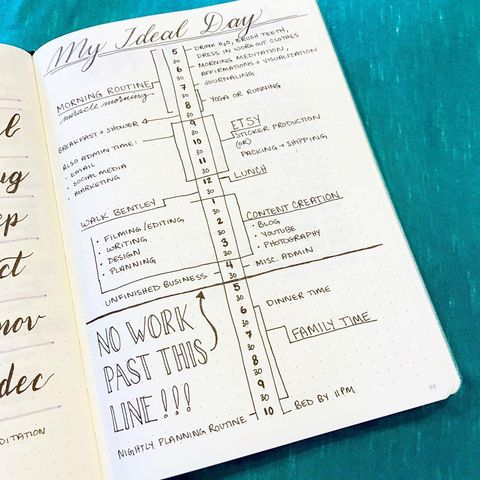 My Ideal Day
5
30
6
30
7
30
8
30
9
30
10
30
11
30
12
30
1
30
2
30
3
30
4
30
5
30
6
30
7
30
8
30
9
30
10
DRINK H2O, BRUSH TEETH,
DRESS IN WORKOUT CLOTHES
MORNING MEDITATION,
AFFIRMATIONS + VISUALIZATION
JOURNALING
MORNING ROUTINE
miracle morning
YOGA OR RUNNING
BREAKFAST + SHOWER
ALSO ADMIN TIME:
• EMAIL
• SOCIAL MEDIA
• MARKETING
ETSY
STICKER PRODUCTION
(OR)
PACKING + SHIPPING
LUNCH
WALK BENTLEY
• FILMING/EDITING
• WRITING
• DESIGN
• PLANNING
CONTENT CREATION
• BLOG
• YOUTUBE
• PHOTOGRAPHY
MISC. ADMIN
UNFINISHED BUSINESS
NO WORK
PAST THIS
LINE!!!
DINNER TIME
FAMILY TIME
BED BY 11PM
NIGHTLY PLANNING ROUTINE
nov
dec